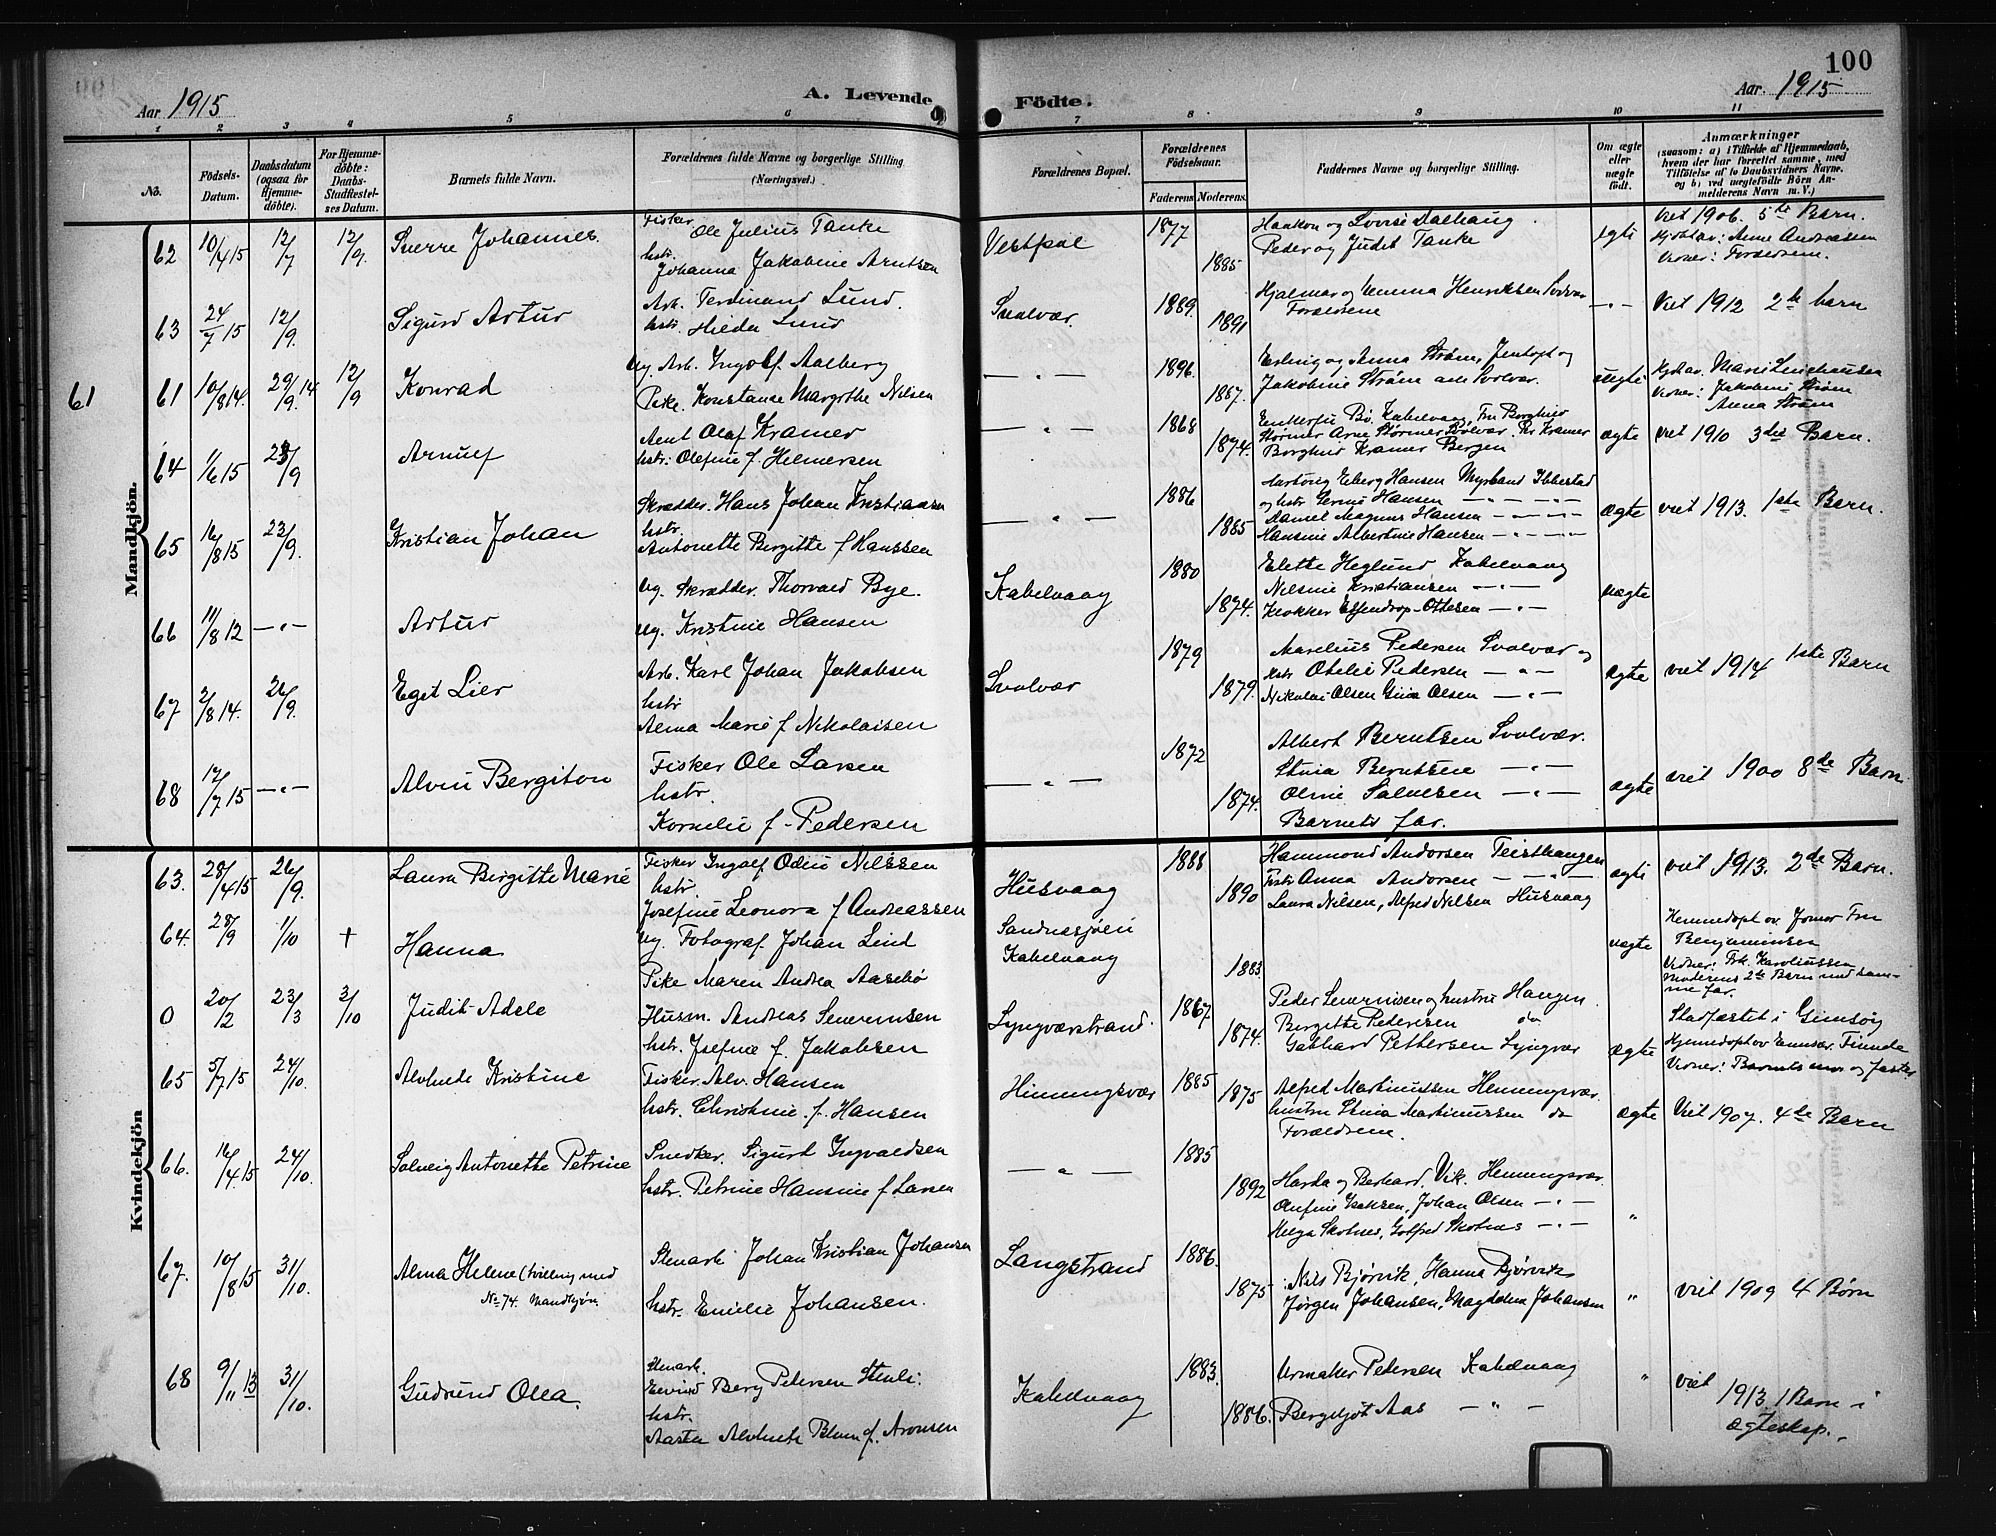 100
Aar 1915 A. Levende Födte. Aar. 1915
1 2 3 4 5 6 7 8 9 10 11
No. Födsels-Datum. Daabsdatum (ogsaa for Hjemme-döbte). For Hjemme-döbte: Daabs-Stadfæstel-ses Datum. Barnets fulde Navn. Forældrenes fulde Navne og borgerlige Stilling. (Næringsvei.) Forældrenes Bopæl. Forældrenes Födselsaar. Faderens Moderens. Faddernes Navne og borgerlige Stilling. Om ægte eller uægte födt. Anmærkninger
(saasom: a) i Tilfælde af Hjemmedaab, hvem der har forrettet samme, med Tilföielse af to Daabsvidners Navne, og b) ved uægtefödte Börn An-melderens Navn m. V.)
Mandkjön.
62 10/4 15 12/7 12/9. Sverre Johannes. Fisker Ole Julius Tanke Vestpol 1877 Haakon og Dalhaug ægte viet 1906. 5te Barn.
hstr. Johanna Jakobine Arntsen 1885 Peder og Judit Tanke Anne Andreasen
Foreldrene.
63 24/7 15 12/9. Sigurd Artur Arb. Ferdinand Lund. Svolvær. 1889. Hjalmar og Emma Henriksen Svolvær — " — Viet 1912 2de barn
hstr. Hilda Lund 1891 Foreldrene
61 61 10/8 14. 29/9. 14 12/9 Konrad Ug. Arb. Ingolf Aalberg — " — 1896. Erling og Anna Strøm, og uægte
Pike. Konstanse Margrethe Nilsen 1887. Jakobine Strøm Svolvær. Vidner: Jakobine Strøm
Anna Strøm
64 1/6 15 23/9 Arnulf Olaf Kramer — " — 1868 Bö, Kabelvaag, Fru Borghild ægte viet 1910 3die Barn.
hstr: Olefine f. Helmersen 1874. Størmer Arne Størmer Svolvær. Kramer
Borghild Kramer Bergen
65 16/8 15 23/9. Kristian Johan Skrædder. Hans Johan Kristiansen — " — 1886 Hansen Myrland Ibbestad ægte viet 1913. 1ste Barn.
hstr. Antonette Bergitte f Hanssen 1885 og hstr Hansen — " —
Daniel Magnus Hansen — " —
Hansine Albertine Hansen — " —
66 11/8 12 — " — Artur Ug. Skrædder. Thorvald Bye. Kabelvaag 1880 Elette Heglund Kabelvaag uægte
Ug. Kristine Hansen 1874. Nilsine Kristiansen — " —
Klokker Ellendrop-Ottesen — " —
67 2/8 14. 26/9. Egil Lier Arb. Karl Johan Jakobsen Svolvær 1879 Marelius Pedersen Svolvær og ægte viet 1914 1ste Barn
hstr Alma Marie f Nikolaisen 1879. hstr Otelie Pedersen — " —
Nikolai Olsen Gina Olsen — " —
68 17/7 15 — " — Alvin Bergiton Fisker Ole Larsen — " — 1872 Albert Berntsen Svolvær. ægte viet 1900 8de Barn
hstr. Kornelie f. Pedersen 1874. Stina Berntsen — " —
Oline Salvesen — " —
Barnets far.
Kvindekjön
63. 28/4 15 26/9. Laura Birgitte Marie Fisker Ingolf Odin Nilssen Husvaag 1888 Hammond Andorsen Teisthaugen ægte viet 1913. 2de Barn.
hstr. Josefine Leonora f Andreassen 1890 Anna Andorsen — " —
Laura Nilsen, Alfred Nilsen Husvaag
64. 28/9 1/10 + Hanna Ug. Fotograf. Johan Lind Sandnesjøen uægte Hjemmedøpt av Jomor Fru
Pike Maren Andrea Aasebø Kabelvaag 1883 Benjaminsen
Vidner: Karoliussen
moderens 2de Barn med sam-
me far.
0 20/2 23/3 3/10 Judit Adele Husm. Andreas Severinsen Lyngværstrand. 1867. Peder Severinsen og hustru Haugen. ægte Stadfæstet i Gimsøy
hstr. Josefine f. Jakobsen 1874. Bergitte Pedersen do Hjemmedøpt av
Gabhard Pettersen Lyngvær Vidner: Barnets mor og faster
65 5/7 15 24/10. Alvhilde Kristine Fisker. Alv. Hansen Henningsvær 1885 Alfred Martinussen Henningsvær. ægte Viet 1907. 4de Barn
hstr. Christine. f. Hansen 1875 hustru Stina Martinussen do
Foreldrene.
66. 16/4. 15 24/10. Solveig Antonette Petrine Snedker. Sigurd Ingvaldsen — " — 1885
hstr. Petrine Hansine f Larsen 1892 Harda og Berhard. Vik. Henningsvær. "
Isaksen, Johan Olsen — " —
Helga Skotnes, Gotfred Skotnes — " —
67. 10/8 15 31/10. Alma Helene (tvilling med Stenarb. Johan Kristian Johansen Langstrand 1886. Nils Bjørvik, Hanna Bjørvik " viet 1909 4 Børn
No 74. Mandkjøn. hstr. Emelie Johansen. 1875 Jørgen Johansen, Magdalena Johansen
68 9/11 13 31/10. Gudrund Olea. Stenarb. Eivind Berg Petersen Kabelvaag 1883. Urmaker Petersen Kabelvaag " viet 1913 1 Barn i
hstr. Aasta Alvhilde Blom f. Aronsen 1886. Bergljot Aas — " — ægteskap.